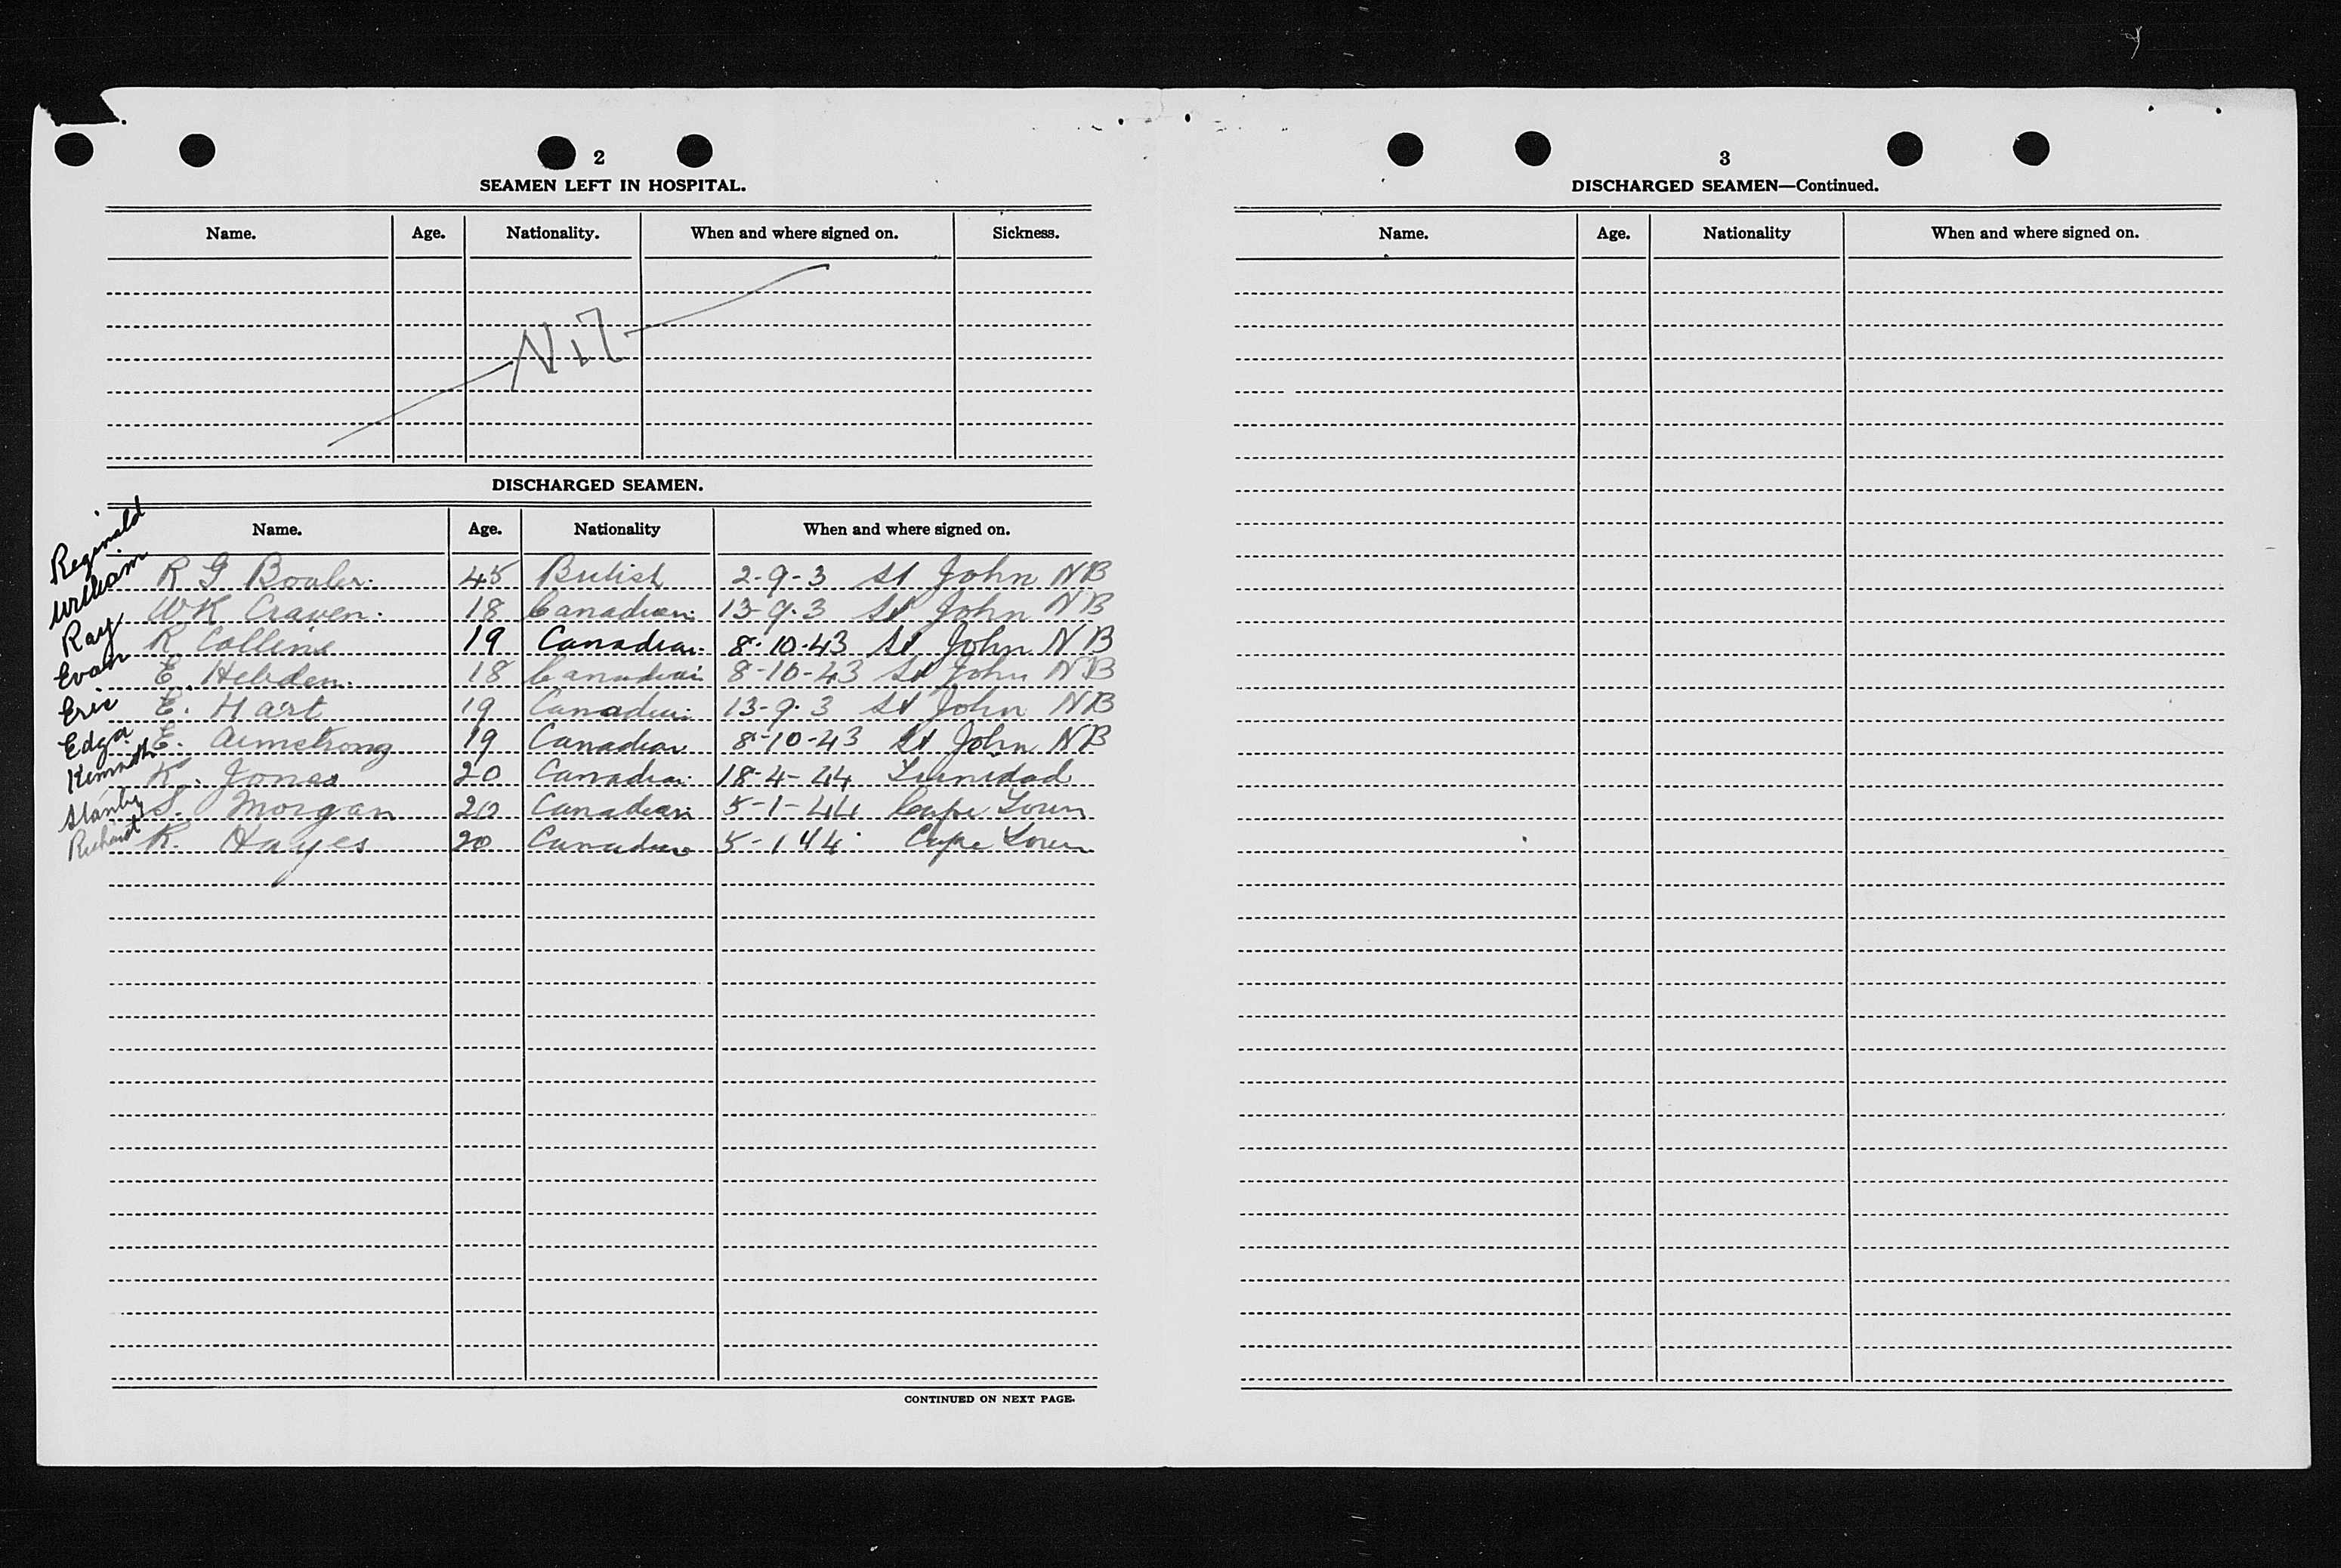 2
SEAMEN LEFT IN HOSPITAL.
Name. Age. Nationality. When and where signed on. Sickness.
Nil
DISCHARGED SEAMEN.
Name. Age. Nationality When and where signed on.
Reginald R G Bowler. 45 British 2-9-3 St John NB
William W K Craven. 18 Canadian 13-9-3 St John NB
Ray R Collins 19 Canadian 8-10-43 St John NB
Evan E. Hebden. 18 Canadian 8-10-43 St John NB
Eric E. Hart 19 Canadian 13-9-3 St John NB
Edgar E. Armstrong 19 Canadian 8-10-43 St John NB
Kenneth K. Jones 20 Canadian 18-4-44 Trinidad
Stanley S. Morgan 20 Canadian 5-1-44 Cape Town
Richard R. Hayes 20 Canadian 5-1 44 Cape Town
CONTINUED ON NEXT PAGE.
3
DISCHARGED SEAMEN—Continued.
Name. Age. Nationality When and where signed on.